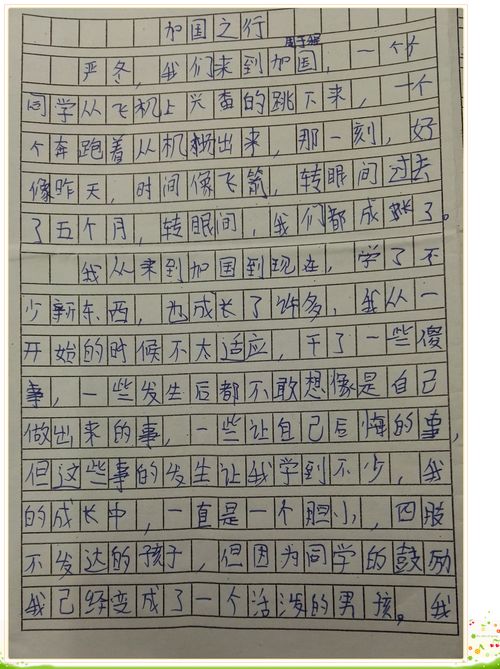 加国之行
严冬，我们来到加国，一个个
同学从飞机上兴奋的跳下来，一个
个奔跑着从机场出来，那一刻，好
像昨天，时间像飞箭，转眼间过去
了五个月，转眼间，我们都成长了。
我从来到加国到现在，学了不
少新东西，也成长了许多，我从一
开始的时候不太适应，干了一些傻
事，一些发生后都不敢想像是自己
做出来的事，一些让自己后悔的事，
但这些事的发生让我学到不少，我
的成长中，一直是一个胆小，四肢
不发达的孩子，但因为同学的鼓励
我已经变成了一个活泼的男孩。我